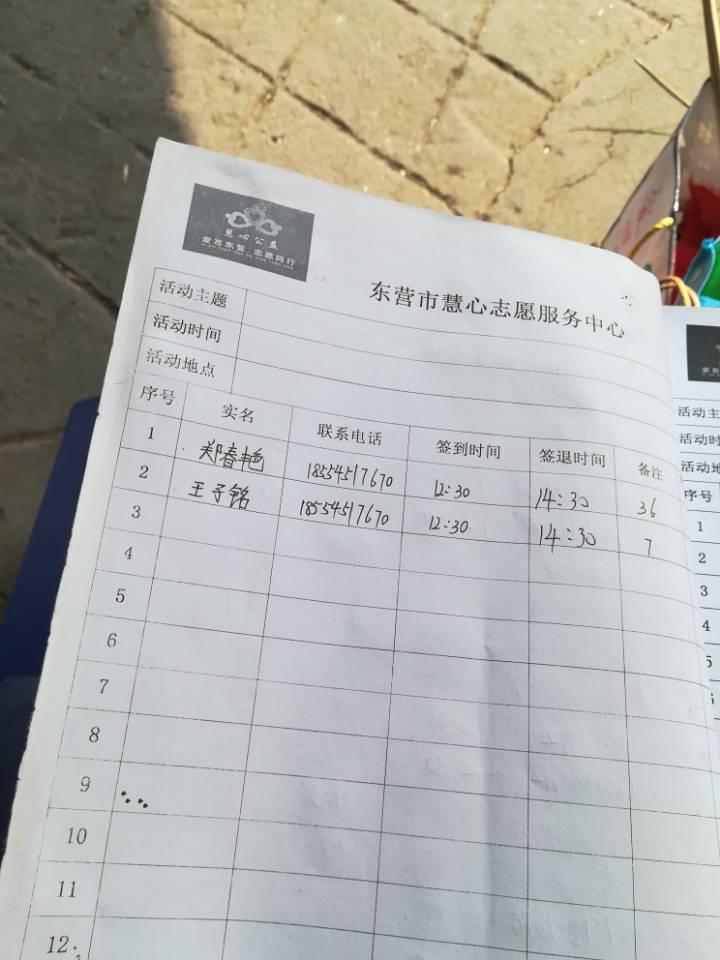 慧心公益
爱在东营 志愿同行
东营市慧心志愿服务中心
活动主题
活动时间
活动地点
序号 实名 联系电话 签到时间 签退时间 备注
1 郑春艳 18554517670 12:30 14:30 36
2 王子铭 18554517670 12:30 14:30 7
3
4
5
6
7
8
9
10
11
12
活动主
活动时
活动地
序号
1
2
3
4
5